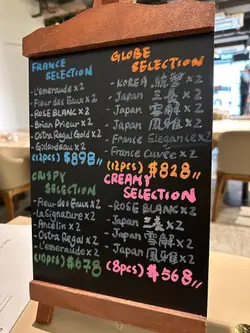 FRANCE
SELECTION
- L'emeraude x2
- Fleur des Eaux x2
- ROSE BLANC x2
- Brian Prieur x2
- Ostra Regal Gold x2
- Gillardeau x2
(12pcs) $898
GLOBE
SELECTION
- KOREA x2
- Japan x2
- Japan x2
- Japan x2
- France Elegance x2
- France Cuvée x2
(12pcs) $828
CRISPY
SELECTION
- Fleur des Eaux x2
- La Signature x2
- Ancelin x2
- Ostra Regal x2
- L'emeraude x2
(10pcs) $678
CREAMY
SELECTION
- ROSE BLANC x2
- Japan x2
- Japan x2
- Japan x2
(8pcs) $568